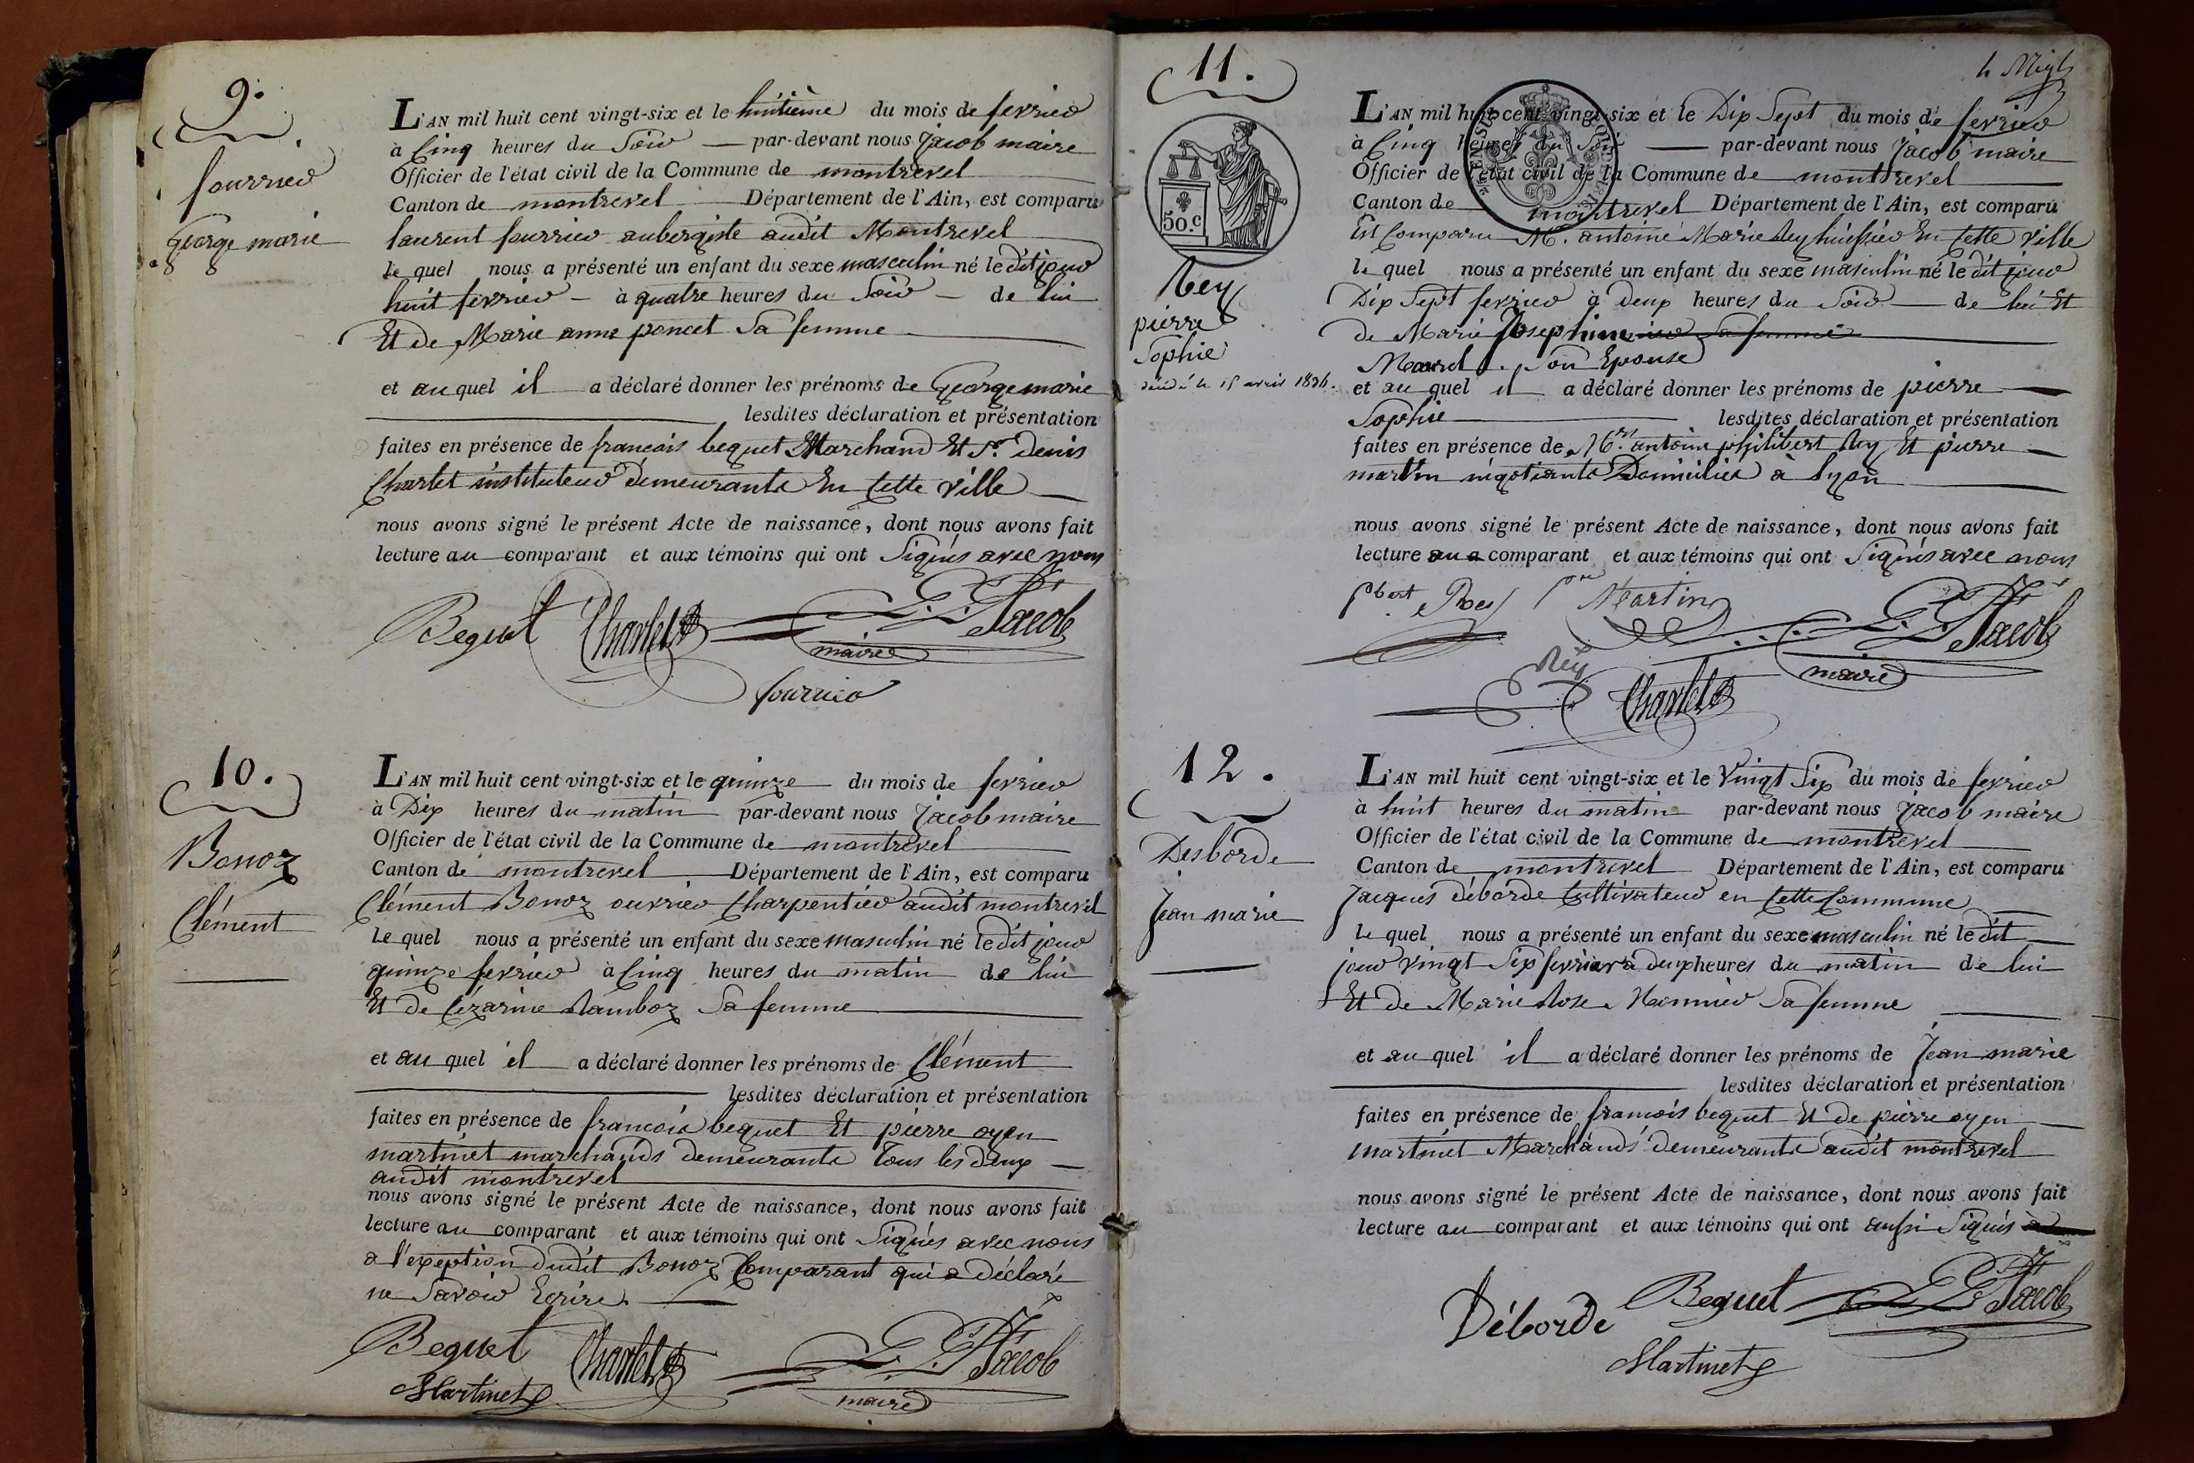 9.
fourrier
george marie
L'AN mil huit cent vingt-six et le huitième du mois de fevrier
à Cinq heures du Soir par-devant nous Jacob maire
Officier de l'état civil de la Commune de montrevel
Canton de montrevel Département de l'Ain, est comparu
laurent fourrier aubergiste audit Montrevel
le quel nous a présenté un enfant du sexe masculin né le dit jour
huit fevrier à quatre heures du Soir de lui
Et de Marie anne poncet Sa femme
et au quel il a déclaré donner les prénoms de George marie
lesdites déclaration et présentation
faites en présence de francois bequet Marchand Et Sr. Denis
Charlet instituteur demeurants En Cette Ville
nous avons signé le présent Acte de naissance, dont nous avons fait
lecture au comparant et aux témoins qui ont Signés avec nous
Bequet Charlet Jacob
maire
fourrier
10.
Bonoz
Clément
L'AN mil huit cent vingt-six et le quinze du mois de fevrier
à Dix heures du matin par-devant nous Jacob maire
Officier de l'état civil de la Commune de montrevel
Canton de montrevel Département de l'Ain, est comparu
Clément Bonoz ouvrier Charpentier audit montrevel
le quel nous a présenté un enfant du sexe masculin né le dit jour
quinze fevrier à Cinq heures du matin de lui
Et de Cézarine Ramboz Sa femme
et au quel il a déclaré donner les prénoms de Clément
lesdites déclaration et présentation
faites en présence de francois bequet Et pierre oyen
martinet marchands demeurants Tous les deux
audit montrevel
nous avons signé le présent Acte de naissance, dont nous avons fait
lecture au comparant et aux témoins qui ont Signés avec nous
a l'exeption dudit Bonoz Comparant qui a déclaré
ne Savoir Ecrire.
Bequet Charlet Jacob
Martinet maire
11.
50.c
Rey
pierre
Sophie
décédé le 15 avril 1836.
L'AN mil huit cent vingt-six et le Dix Sept du mois de fevrier
à Cinq heures du Soir par-devant nous Jacob maire
Officier de l'état civil de la Commune de montrevel
Canton de montrevel Département de l'Ain, est comparu
Est Comparu M. antoine Marie Rey huissier En Cette Ville
le quel nous a présenté un enfant du sexe masculin né le dit jour
Dix Sept fevrier à Deux heures du Soir de lui Et
de Marie Josephine Sa femme
Morel Son Epouse
et au quel il a déclaré donner les prénoms de pierre
Sophie lesdites déclaration et présentation
faites en présence de Mrs. antoine philibert Rey Et pierre
martin négotiants Domiciliés à Lyon
nous avons signé le présent Acte de naissance, dont nous avons fait
lecture au comparant et aux témoins qui ont Signés avec nous
pbert Rey pre Martin Jacob
maire
Rey
Charlet
12.
Desborde
Jean marie
L'AN mil huit cent vingt-six et le Vingt Six du mois de fevrier
à huit heures du matin par-devant nous Jacob maire
Officier de l'état civil de la Commune de montrevel
Canton de montrevel Département de l'Ain, est comparu
Jacques déborde Cultivateur en Cette Commune
le quel nous a présenté un enfant du sexe masculin né le dit
jour Vingt Six fevrier à deux heures du matin de lui
Et de Marie Rose Monnier Sa femme
et au quel il a déclaré donner les prénoms de Jean marie
lesdites déclaration et présentation
faites en présence de francois bequet Et de pierre oyen
martinet Marchands demeurants audit montrevel
nous avons signé le présent Acte de naissance, dont nous avons fait
lecture au comparant et aux témoins qui ont aussi Signés
Déborde Bequet Jacob
Martinet